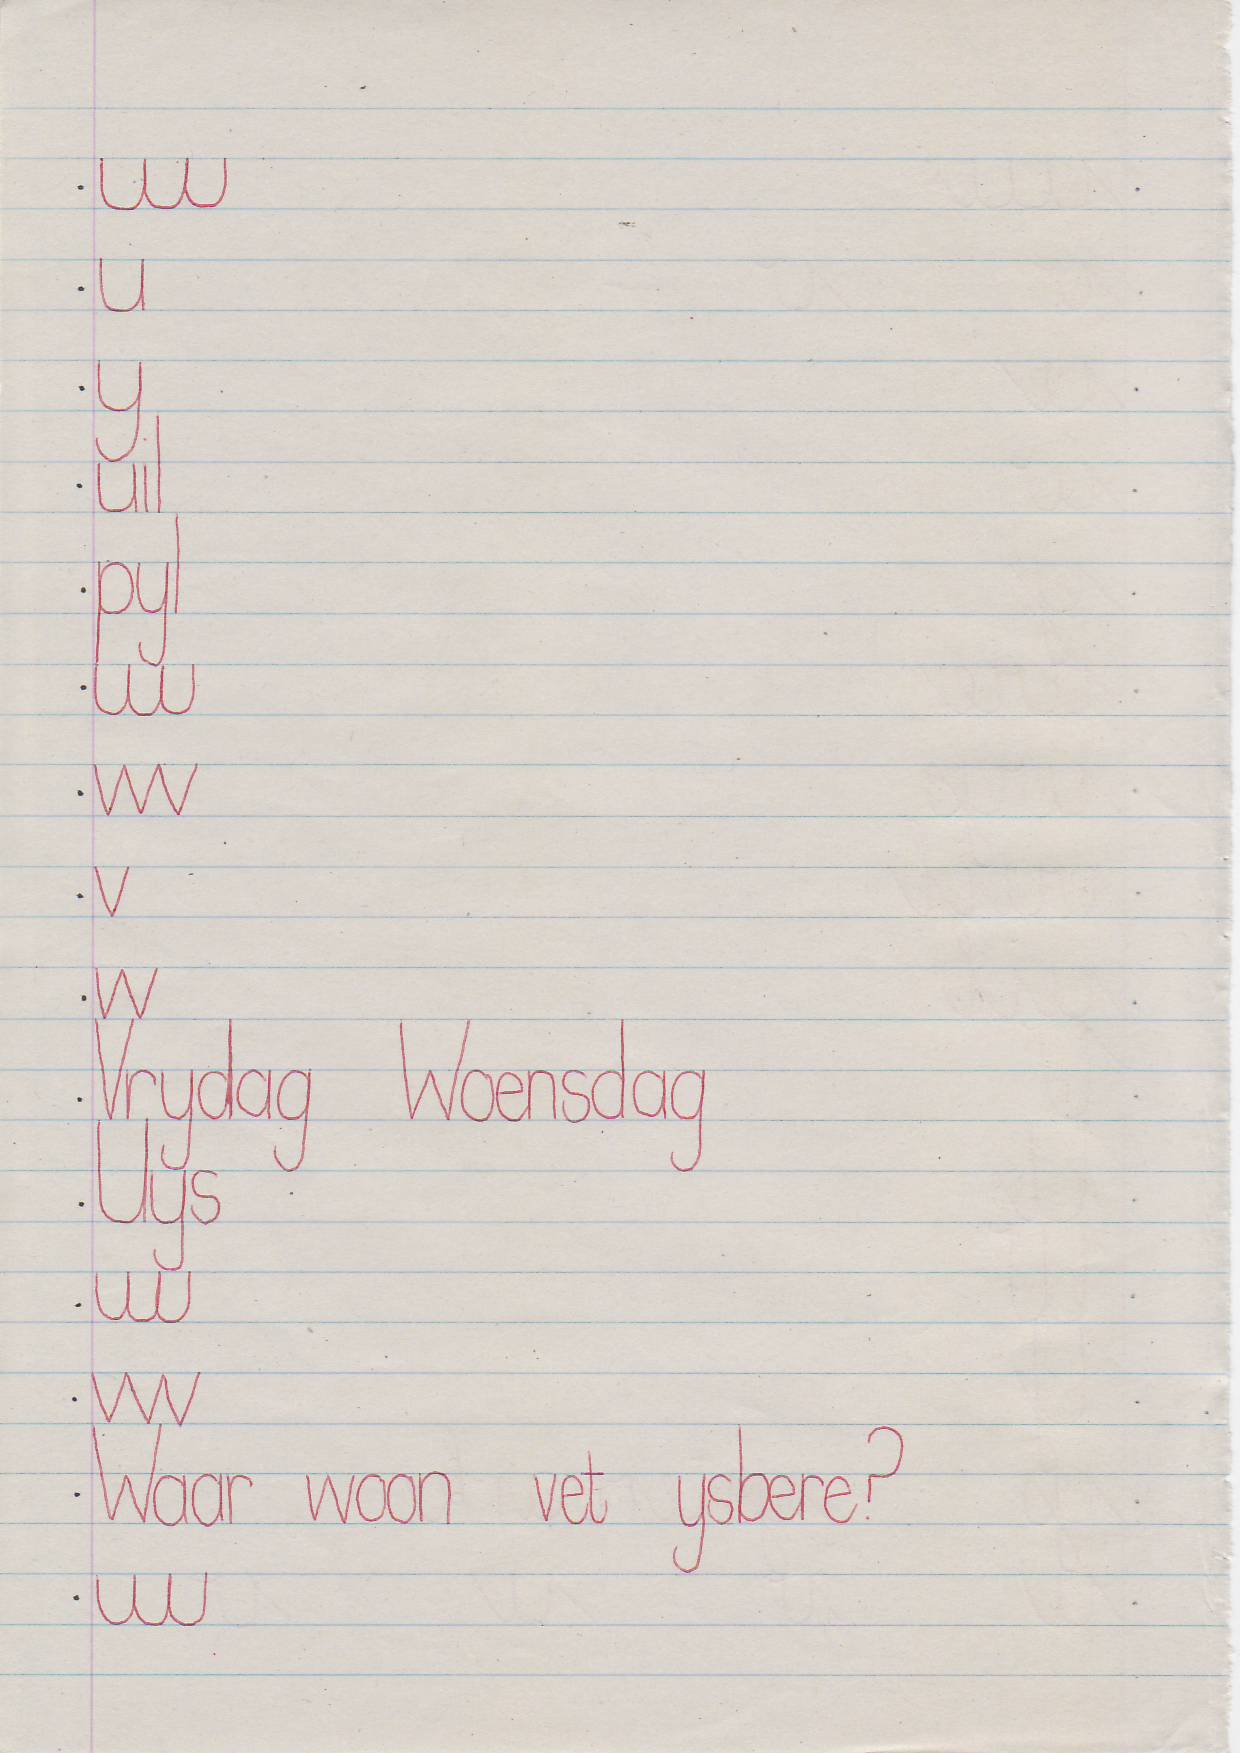 uuu
u
y
uil
pyl
uuu
vvv
v
w
Vrydag Woensdag
Uys
uuu
vvv
Waar woon vet ysbere?
uuu